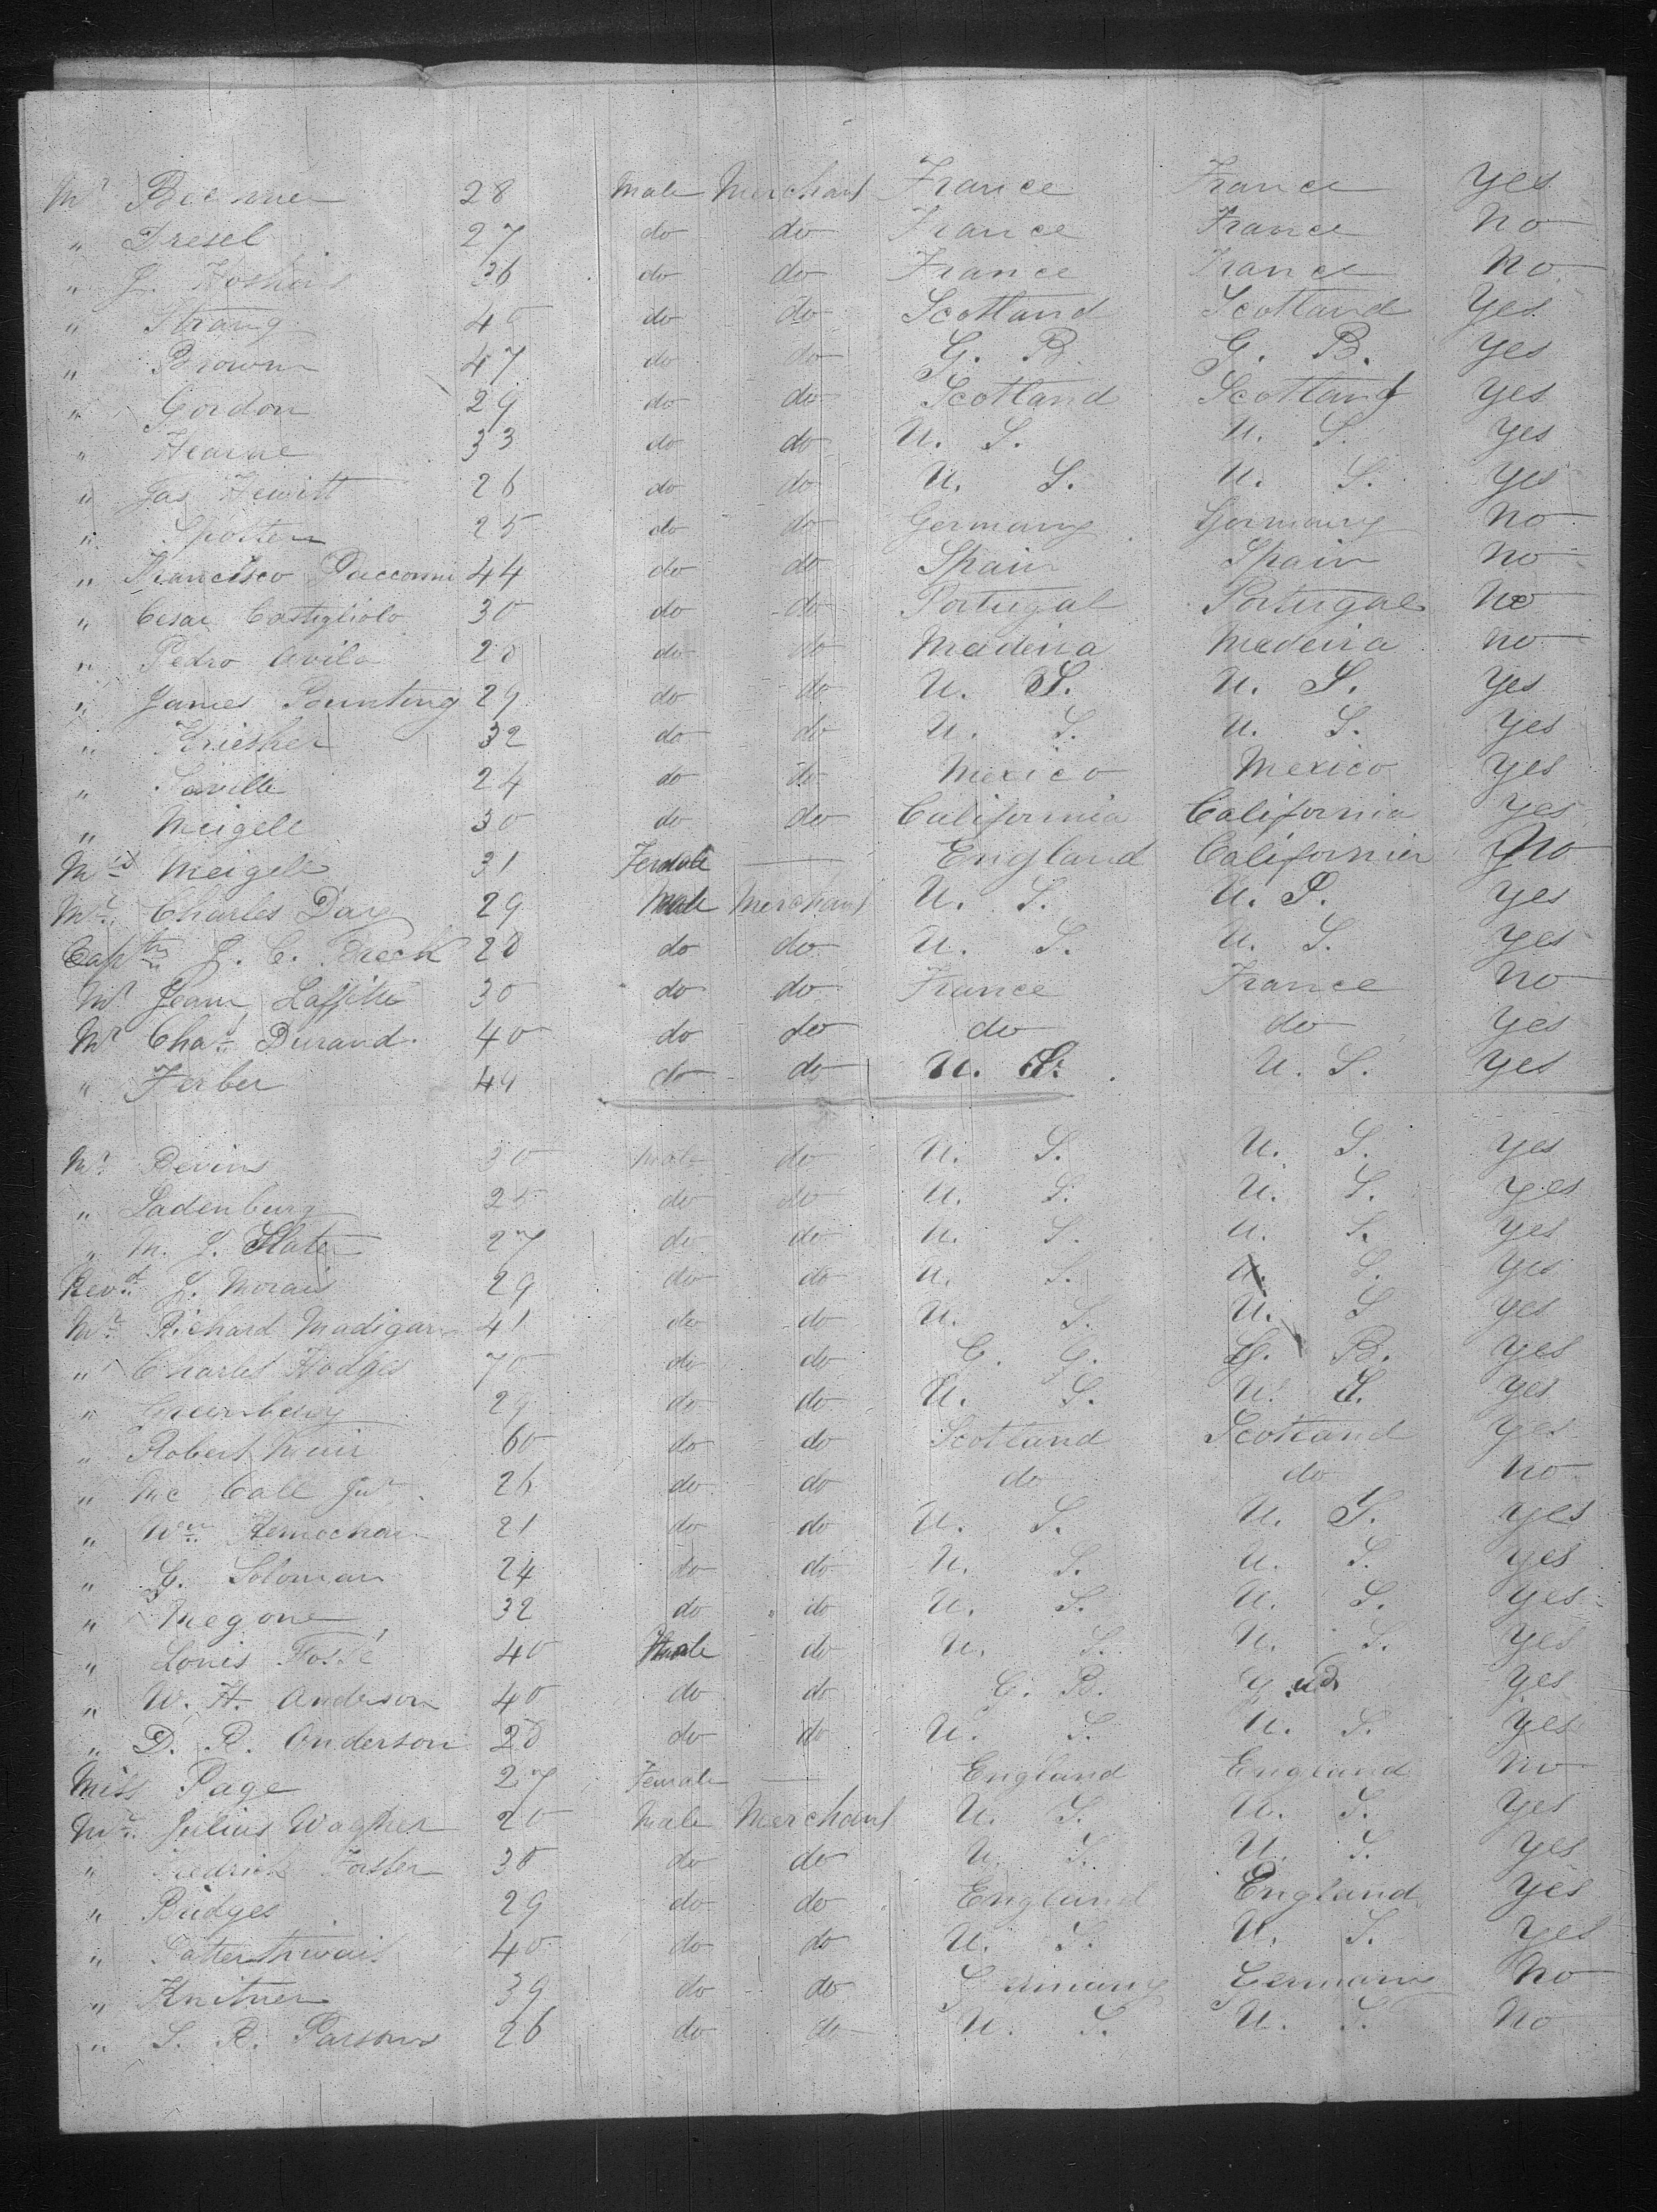 Mr 28 Male Merchant France France Yes
" Dresel 27 do do France France No
" J. 36 do do France France No
" Strang 40 do do Scotland Scotland Yes
" Brown 47 do do G. B. G. B. Yes
" Gordon 29 do do Scotland Scotland Yes
" Hearne 33 do do U. S. U. S. Yes
" Jas Hewitt 26 do do U. S. U. S. Yes
" Spotten 25 do do Germany Germany No
" Francisco 44 do do Spain Spain No
" Cesar Castigliolo 30 do do Portugal Portugal No
" Pedro Avila 28 do do Madeira Madeira No
" James Pounting 29 do do U. S. U. S. Yes
" Kriesher 32 do do U. S. U. S. Yes
" Saville 24 do do Mexico Mexico Yes
" Meigell 30 do do California California Yes
Mrs Meigell 31 Female — England California No
Mr Charles Darg 29 Male Merchant U. S. U. S. Yes
Captn J. C. 28 do do U. S. U. S. Yes
Mr Jean Laffitte 30 do do France France No
Mr Chas Durand 40 do do do do Yes
" Ferber 49 do do U. S. U. S. Yes
Mr Devins 30 Male do U. S. U. S. Yes
" Ladenburg 25 do do U. S. U. S. Yes
" M. S. Slater 27 do do U. S. U. S. Yes
Revd J. Morais 29 do do U. S. U. S. Yes
Mr Richard Madigan 41 do do U. S. U. S. Yes
" Charles Hodges 70 do do G. G. G. B. Yes
" Greenberg 29 do do U. S. U. S. Yes
" Robert Muir 60 do do Scotland Scotland Yes
" Mc Call Jnr 26 do do do do No
" Wm 21 do do U. S. U. S. Yes
" G. Soloman 24 do do U. S. U. S. Yes
" Megone 32 do do U. S. U. S. Yes
" Louis Fossé 40 Male do U. S. U. S. Yes
" W. H. Anderson 40 do do G. B. G. B. Yes
" D. R. Anderson 28 do do U. S. U. S. Yes
Miss Page 27 Female — England England No
Mr Julius Wagner 20 Male Merchant U. S. U. S. Yes
" Fredrick Forster 30 do do U. S. U. S. Yes
" Bridges 29 do do England England Yes
" Satterthwait 40 do do U. S. U. S. Yes
" Knitner 39 do do Germany Germany No
" S. R. Parsons 26 do do U. S. U. S. No